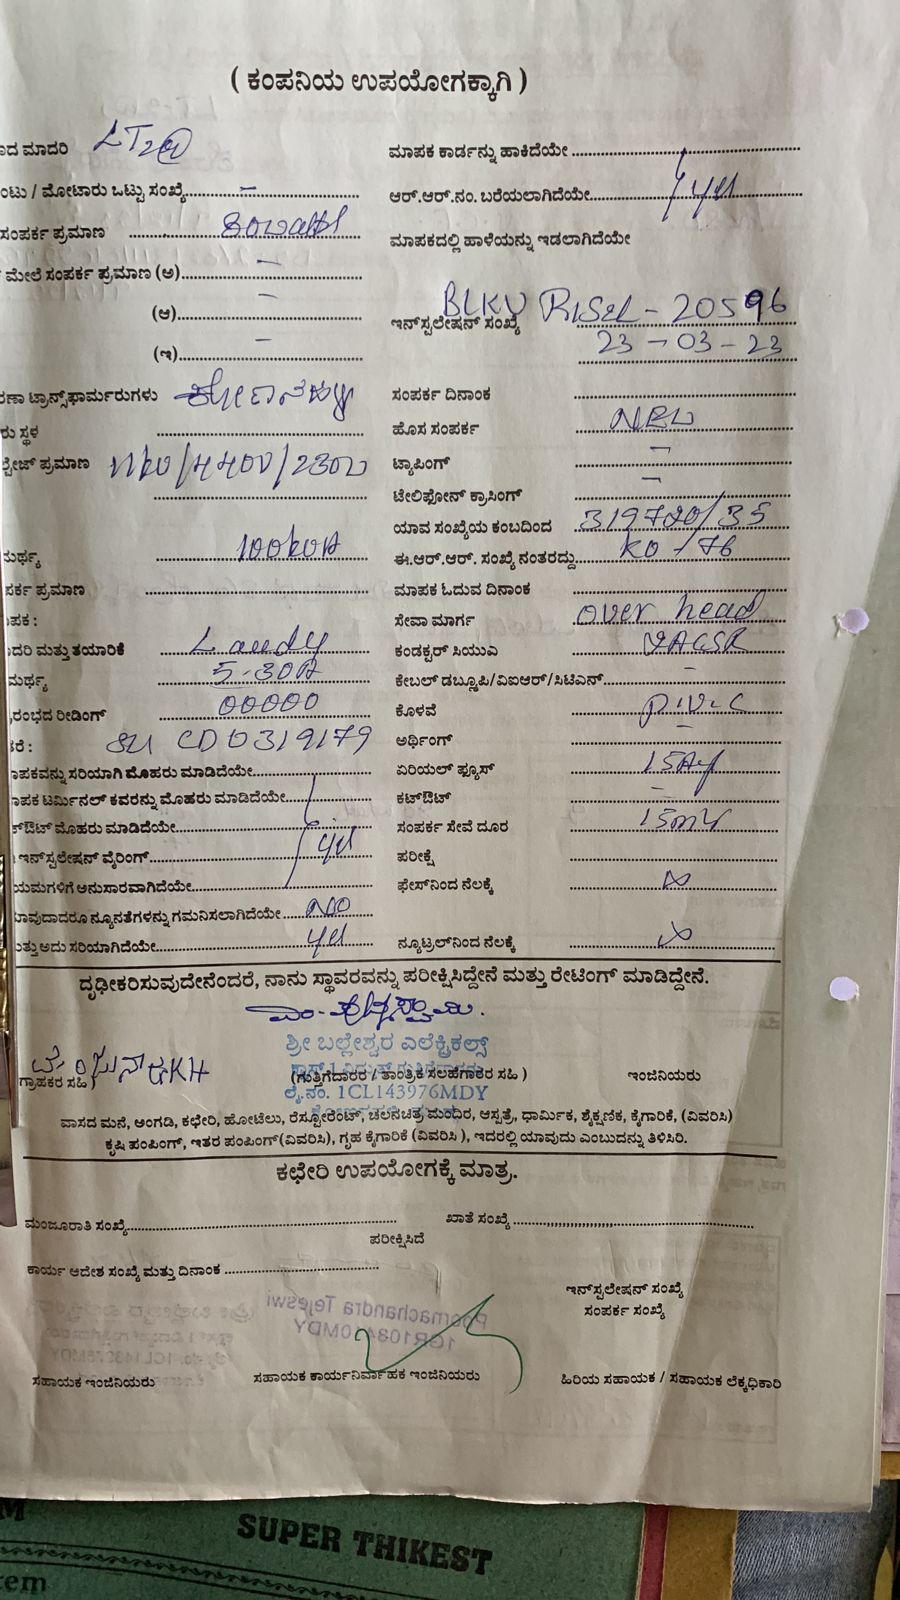 ( ಕಂಪನಿಯ ಉಪಯೋಗಕ್ಕಾಗಿ )
ಾದ ಮಾದರಿ LT2@
ಂಟು / ಮೋಟಾರು ಒಟ್ಟು ಸಂಖ್ಯೆ –
ಸಂಪರ್ಕ ಪ್ರಮಾಣ 80watts
ಮೇಲೆ ಸಂಪರ್ಕ ಪ್ರಮಾಣ (ಅ) –
(ಆ) –
(ಇ) –
ರಣಾ ಟ್ರಾನ್ಸ್‌ಫಾರ್ಮರುಗಳು
ರು ಸ್ಥಳ
ಲ್ಟೇಜ್ ಪ್ರಮಾಣ 11kv/440v/230v
ಮರ್ಥ್ಯ 100kVA
ಪರ್ಕ ಪ್ರಮಾಣ
ಾಪಕ :
ದರಿ ಮತ್ತು ತಯಾರಿಕೆ Landy
ಮರ್ಥ್ಯ 5-30A
ರಂಭದ ರೀಡಿಂಗ್ 00000
ರೆ : CD0319179
ಾಪಕವನ್ನು ಸರಿಯಾಗಿ ಮೊಹರು ಮಾಡಿದೆಯೇ
ಾಪಕ ಟರ್ಮಿನಲ್ ಕವರನ್ನು ಮೊಹರು ಮಾಡಿದೆಯೇ
ಕ್‌ಔಟ್ ಮೊಹರು ಮಾಡಿದೆಯೇ
ಇನ್‌ಸ್ಟಲೇಷನ್ ವೈರಿಂಗ್ yes
ಯಮಗಳಿಗೆ ಅನುಸಾರವಾಗಿದೆಯೇ
ಾವುದಾದರೂ ನ್ಯೂನತೆಗಳನ್ನು ಗಮನಿಸಲಾಗಿದೆಯೇ NO
ುತ್ತು ಅದು ಸರಿಯಾಗಿದೆಯೇ yes
ಮಾಪಕ ಕಾರ್ಡನ್ನು ಹಾಕಿದೆಯೇ
ಆರ್.ಆರ್.ನಂ. ಬರೆಯಲಾಗಿದೆಯೇ yes
ಮಾಪಕದಲ್ಲಿ ಹಾಳೆಯನ್ನು ಇಡಲಾಗಿದೆಯೇ
ಇನ್‌ಸ್ಟಲೇಷನ್ ಸಂಖ್ಯೆ BLKV 20596
23-03-23
ಸಂಪರ್ಕ ದಿನಾಂಕ
ಹೊಸ ಸಂಪರ್ಕ NEW
ಟ್ಯಾಪಿಂಗ್ –
ಟೇಲಿಫೋನ್ ಕ್ರಾಸಿಂಗ್ –
ಯಾವ ಸಂಖ್ಯೆಯ ಕಂಬದಿಂದ 319720/35
ಈ.ಆರ್.ಆರ್. ಸಂಖ್ಯೆ ನಂತರದ್ದು KO-76
ಮಾಪಕ ಓದುವ ದಿನಾಂಕ
ಸೇವಾ ಮಾರ್ಗ over head
ಕಂಡಕ್ಟರ್ ಸಿಯುವಿ
ಕೇಬಲ್ ಡಬ್ಲೂಪಿ/ವಿಐಆರ್/ಸಿಟಿಎನ್ –
ಕೊಳವೆ P.V.C
ಅರ್ಥಿಂಗ್ –
ಏರಿಯಲ್ ಫ್ಯೂಸ್ 15Ay
ಕಟ್‌ಔಟ್ –
ಸಂಪರ್ಕ ಸೇವೆ ದೂರ 15mtr
ಪರೀಕ್ಷೆ
ಫೇಸ್‌ನಿಂದ ನೆಲಕ್ಕೆ
ನ್ಯೂಟ್ರಲ್‌ನಿಂದ ನೆಲಕ್ಕೆ
ದೃಢೀಕರಿಸುವುದೇನೆಂದರೆ, ನಾನು ಸ್ಥಾವರವನ್ನು ಪರೀಕ್ಷಿಸಿದ್ದೇನೆ ಮತ್ತು ರೇಟಿಂಗ್ ಮಾಡಿದ್ದೇನೆ.
ಶ್ರೀ ಬಲ್ಲೇಶ್ವರ ಎಲೆಕ್ಟ್ರಿಕಲ್ಸ್
ಗ್ರಾಹಕರ ಸಹಿ ) (ಗುತ್ತಿಗೆದಾರರ / ತಾಂತ್ರಿಕ ಸಲಹೆಗಾರರ ಸಹಿ ) ಇಂಜಿನಿಯರು
ಲೈ.ನಂ. 1CL143976MDY
ವಾಸದ ಮನೆ, ಅಂಗಡಿ, ಕಛೇರಿ, ಹೋಟೆಲು, ರೆಸ್ಟೋರೆಂಟ್, ಚಲನಚಿತ್ರ ಮಂದಿರ, ಆಸ್ಪತ್ರೆ, ಧಾರ್ಮಿಕ, ಶೈಕ್ಷಣಿಕ, ಕೈಗಾರಿಕೆ, (ವಿವರಿಸಿ)
ಕೃಷಿ ಪಂಪಿಂಗ್, ಇತರ ಪಂಪಿಂಗ್(ವಿವರಿಸಿ), ಗೃಹ ಕೈಗಾರಿಕೆ (ವಿವರಿಸಿ ), ಇದರಲ್ಲಿ ಯಾವುದು ಎಂಬುದನ್ನು ತಿಳಿಸಿರಿ.
ಕಛೇರಿ ಉಪಯೋಗಕ್ಕೆ ಮಾತ್ರ.
ಮಂಜೂರಾತಿ ಸಂಖ್ಯೆ ಖಾತೆ ಸಂಖ್ಯೆ
ಪರೀಕ್ಷಿಸಿದೆ
ಕಾರ್ಯ ಆದೇಶ ಸಂಖ್ಯೆ ಮತ್ತು ದಿನಾಂಕ
ಇನ್‌ಸ್ಟಲೇಷನ್ ಸಂಖ್ಯೆ
ಸಂಪರ್ಕ ಸಂಖ್ಯೆ
Poornachandra Tejeswi
ಸಹಾಯಕ ಇಂಜಿನಿಯರು ಸಹಾಯಕ ಕಾರ್ಯನಿರ್ವಾಹಕ ಇಂಜಿನಿಯರು ಹಿರಿಯ ಸಹಾಯಕ / ಸಹಾಯಕ ಲೆಕ್ಕಧಿಕಾರಿ
SUPER THIKEST